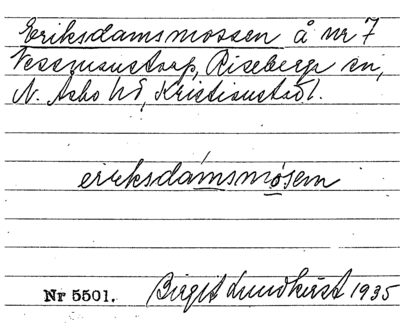 Eriksdamsmossen å nr 7
Vessmanstorp, Riseberga sn,
N. Åsbo hd, Kristianstad l.
eriksdámsmósem
Nr 5501. Birgit Lundkvist 1935